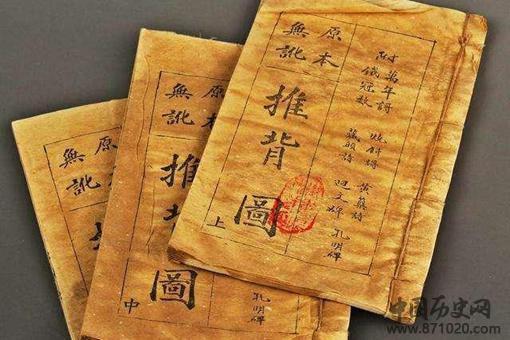 附
萬年
鐵冠數
燒餅
藏頭詩
黃蘗詩
孔明碑
原本
無訛
推背圖
上
原本
無訛
推
圖
中
孔明碑
原本
無訛
中国历史网
www.871020.com